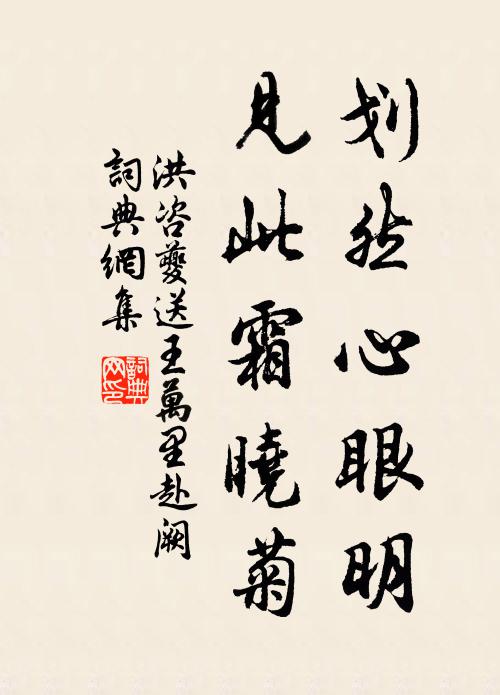 划然心眼明
見此霜曉菊
洪咨夔送王萬里赴闕
詞典網集
詞典
网印